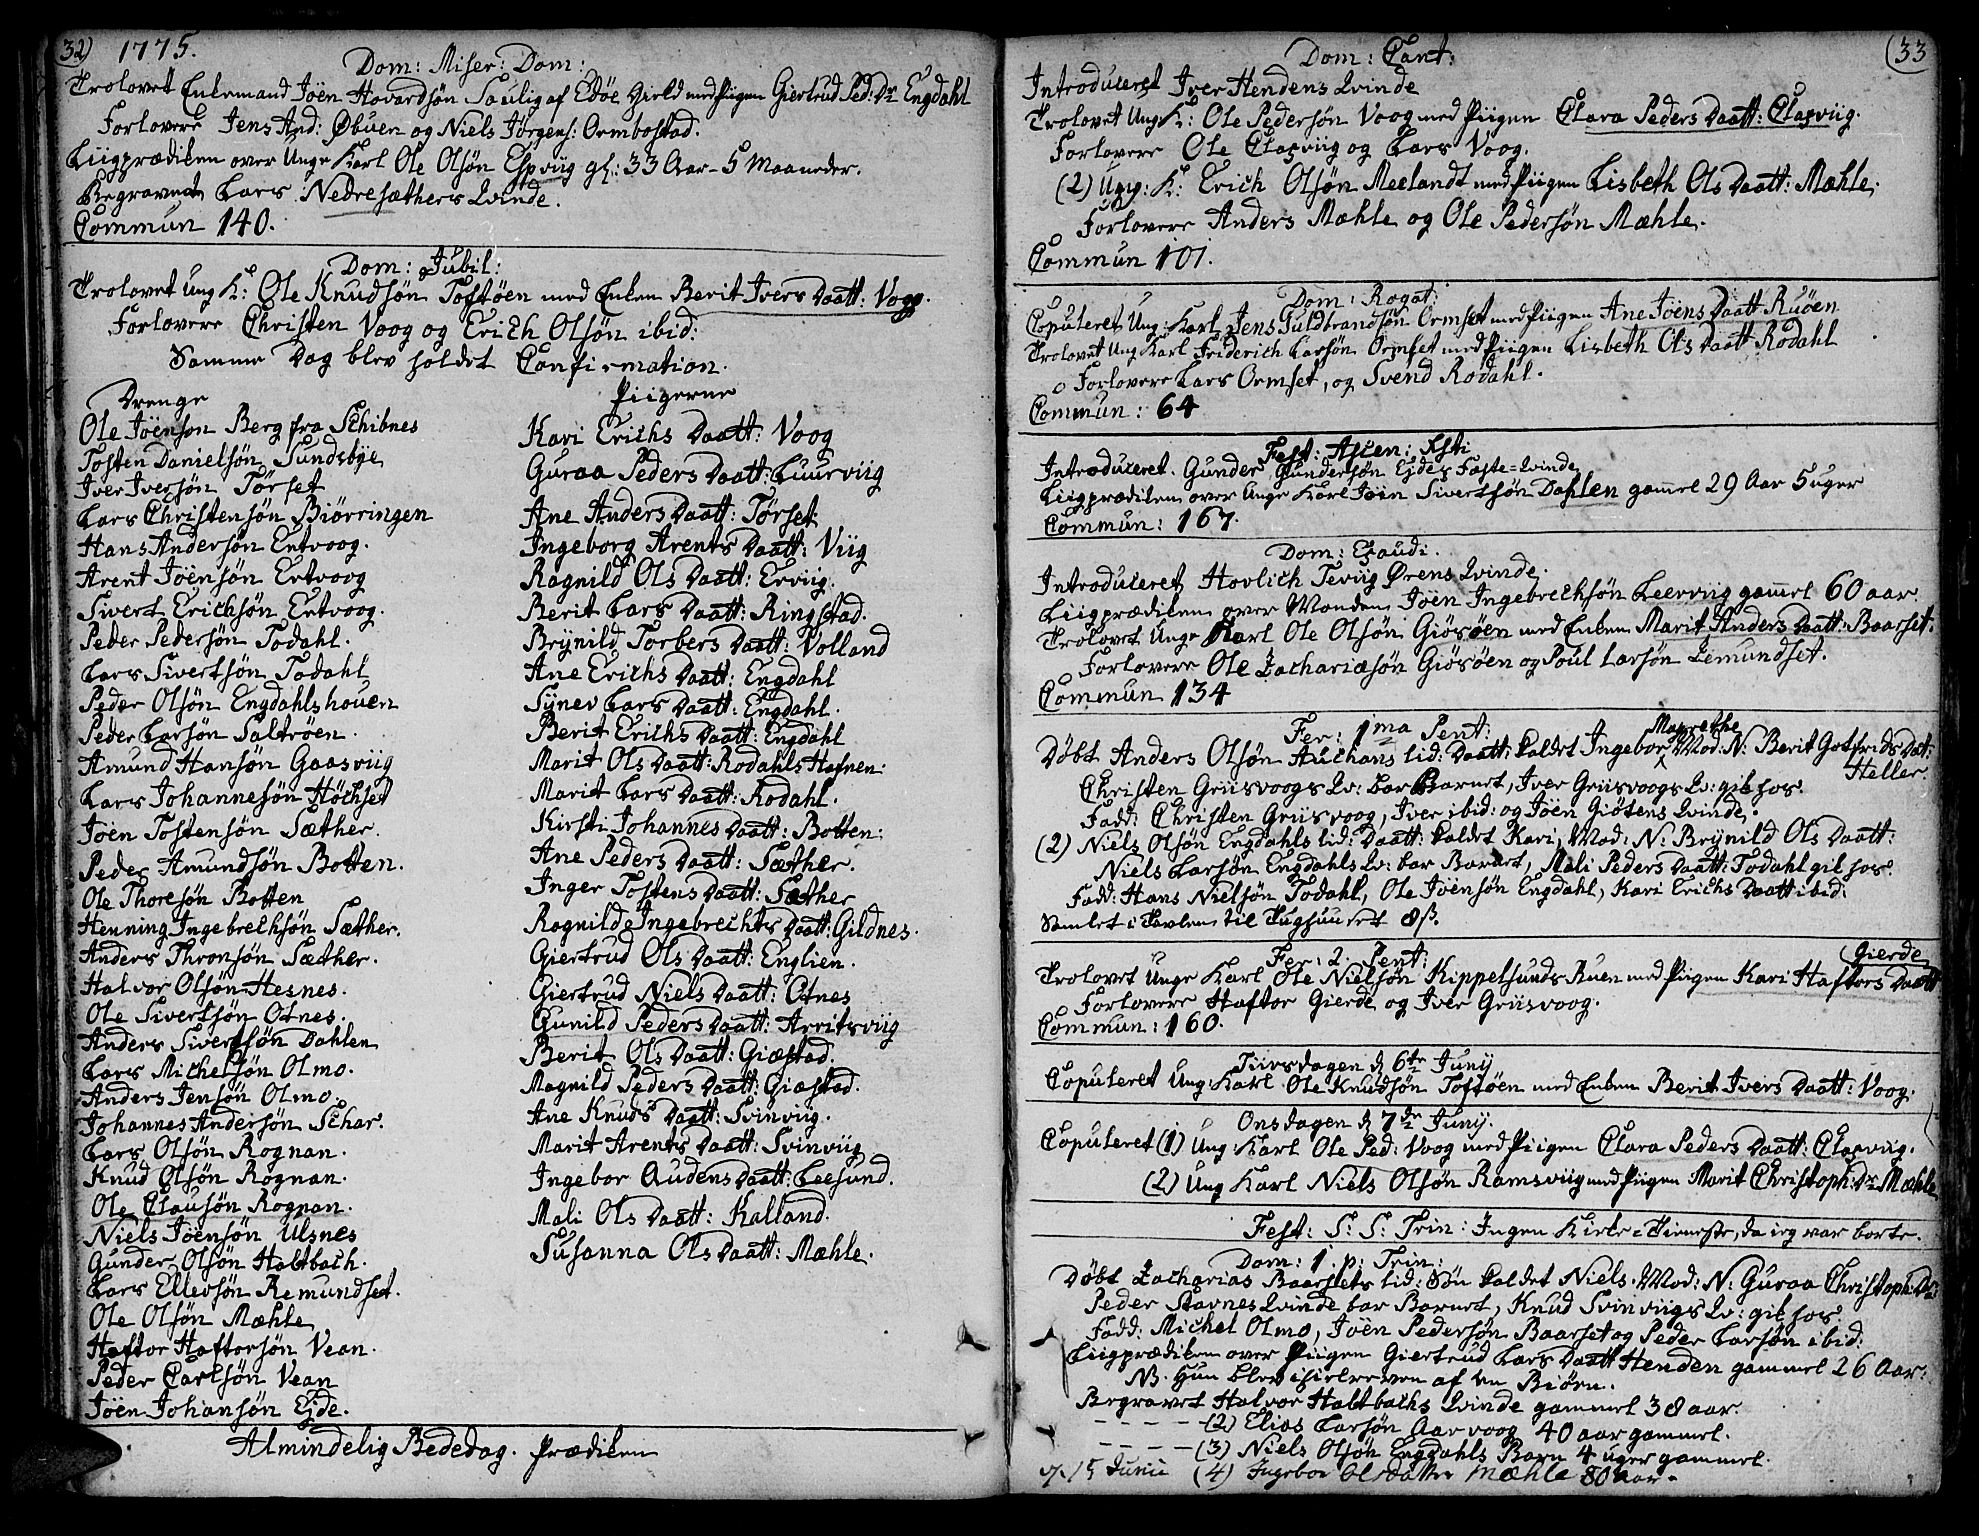 32) 1775.
Dom: Miser: Dom:
Trolovet Enkemand Jöen Hovardsön Saulig af Edöe Gield med Piigen Giertrud Ped: Dr Engdahl
Forlovere Jens And: Øbuen og Niels Jörgens: Ormbostad.
Liigprædiken over Unge Karl Ole Olsön Espviig gl: 33 Aar - 5 Maaneder.
Begravet Lars Nedresæthers Qvinde.
Commun 140.
Dom: Jubil:
Trolovet Ung K: Ole Knudsön Toftöen med Enken Berit Ivers Daatt: Vogg.
Forlovere Christen Voog og Erich Olsön ibid:
Samme Dag blev holdet Confirmation.
Drenge
Ole Jöenson Berg fra Schibnes
Tosten Danielsön Sundsbye
Iver Iversön Törset
Lars Christensön Biörringen
Hans Andersön Ertvoog.
Arent Jöensön Ertvoog
Sivert Erichsön Ertvoog.
Peder Pedersön Todahl.
Lars Sivertsön Todahl
Peder Olsön Engdahlshouen
Peder Larsön Saltröen.
Amund Hansön Gaasviig
Lars Johannesön Höchset
Jöen Tostensön Sæther.
Peder Amundsön Botten.
Ole Thoresön Botten
Henning Ingebrechsön Sæther.
Anders Thronsön Sæther.
Halvor Olsön Hesnes.
Ole Sivertsön Otnes.
Anders Sivertsön Dahlen
Lars Michelsön Olmo.
Anders Jensön Olmo.
Johannes Andersön Schar.
Lars Olsön Rognan.
Knud Olsön Rognan.
Ole Clausön Rognan.
Niels Jöensön Ulsnes
Gunder Olsön Haltbach.
Lars Ellevsön Remundset.
Ole Olsön Mæhle
Haftor Haftorsön Vean.
Peder Carlsön Vean
Jöen Johansön Ejde.
Piigerne
Kari Erichs Daatt: Voog
Guraa Peders Daatt: Luurviig
Ane Anders Daatt: Törset.
Ingeborg Arents Daatt: Viig
Ragnild Ols Daatt: Erviig.
Berit Lars Daatt: Ringstad.
Brynild Torbers Daatt: Volland
Ane Erichs Daatt: Engdahl
Synev Lars Daatt: Engdahl.
Berit Erichs Daatt: Engdahl
Marit Ols Daatt: Rodahls Hafnen:
Marit Lars Daatt: Rodahl.
Kirsti Johannes Daatt: Botten:
Ane Peders Daatt: Sæther.
Inger Tostens Daatt: Sæther
Rognild Ingebrechts Daatt: Gildnes.
Giertrud Ols Daatt: Englien.
Giertrud Niels Daatt: Otnes
Gunild Peders Daatt: Arritsviig
Berit Ols Daatt: Giæstad.
Magnild Peders Daatt: Giæstad.
Ane Knuds Daatt: Svinviig.
Marit Arents Daatt: Svinviig
Ingebor Audens Daatt: Leesund.
Mali Ols Daatt: Kalland.
Susanna Ols Daatt: Mæhle.
Almindelig Bededag. Prædiken
33
Dom: Cant:
Introduceret Iver Hendens Qvinde
Trolovet Ung K: Ole Pedersön Voog med Piigen Clara Peders Daatt: Clasviig.
Forlovere Ole Clasviig og Lars Voog.
(2) Ung: K: Erich Olsön Meelandt med Piigen Lisbeth Ols Daatt: Mæhle.
Forlovere Anders Mæhle og Ole Pedersön Mæhle.
Commun 101.
Dom: Rogat:
Copuleret Ung: Karl Jens Guldbrandsön Ormset med Piigen Ane Jöens Daatt Ruöen
Trolovet Ung Karl Friderich Larsön Ormset med Piigen Lisbeth Ols Daatt Rodahl
Forlovere Lars Ormset, og Svend Rodahl.
Commun: 64
Fest: Ascen: Xsti
Introduceret. Gunder Gundersön Ejdes Fæste=Qvinde
Liigprædiken over Unge Karl Jöen Sivertsön Dahlen gamel 29 Aar 5 uger
Commun: 167.
Dom: Exaudi.
Introduceret Hovlich Teviig Ørens Qvinde.
Liigprædiken over Manden Jöen Ingebrechsön Leerviig gamel 60 aar
Trolovet Unge Karl Ole Olsön Giösöen med Enken Marit Anders Daatt: Baarset:
Forlovere Ole Zachariasön Giösöen og Poul Larsön Lemundset.
Commun 134
Fer: 1ma Pent:
Døbt Anders Olsön Auchans lid: Daatt: kaldet Ingebor Magrethe Mod: N: Berit Gotfrids Dat: Heller
Christen Griisvoogs Qv: bar Barnet, Iver Griisvoogs Qv: gik hos.
Fadd: Christen Griisvoog, Iver ibid: og Jöen Giötens Qvinde.
(2) Niels Olsön Engdahls lid: Daatt: kaldet Kari, Mod: N: Brynild Ols Daatt:
Niels Larsön Engdahls Qv: bar Barnet, Mali Peders Daatt: Todahl gik hos.
Fadd: Hans Nielsön Todahl, Ole Jöensön Engdahl, Kari Erichs Daatt ibid:
Samlet i Tavlen til Tughuuset 8 s.
Fer: 2. Pent:
Trolovet Unge Karl Ole Nielsön Kippelsunds Ruen med Piigen Kari Haftors Daatt Gierde
Forlovere Haftor Gierde og Iver Griisvoog.
Commun: 160.
Tiirsdagen d 6te Juny
Copuleret Ung: Karl Ole Knudsön Toftöen med Enken Berit Ivers Daatt: Voog.
Onsdagen d 7de Juny.
Copuleret (1) Ung: Karl Ole Ped: Voog med Piigen Clara Peders Daatt: Clasviig.
(2) Ung Karl Niels Olsön Ramsviig med Piigen Marit Christoph: Dr Mæhle
Fest: S: S: Trin: Ingen Kirke=Tieneste, da ieg var borte.
Dom: 1. p: Trin:
Døbt Zacharias Baarsets lid: Sön kaldet Niels. Mod: N: Guraa Christoph: Dr:
Peder Stavnes Qvinde bar Barnet, Knud Svinviigs Qv: gik hos.
Fadd: Michel Olmo, Jöen Pedersön Baarset og Peder Larsön ibid:
Liigprædiken over Piigen Giertrud Lars Daatt Henden gammel 26 Aar:
NB. Hun blev ihielreven af en Biörn.
Begravet Halvor Haltbachs Qvinde gammel 38 aar.
- - - - (2) Elias Larsön Aarvoog 40 aar gammel.
- - - - (3) Niels Olsön Engdahls Barn 4 uger gammel.
15 Junii (4) Ingebor Olsdatter Mæhle 80 aar.